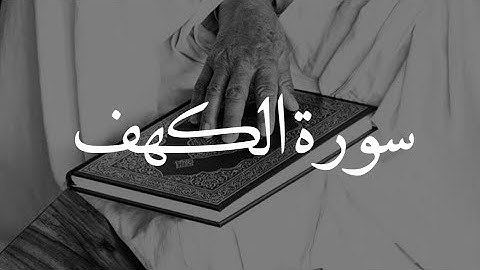 سورة الكهف